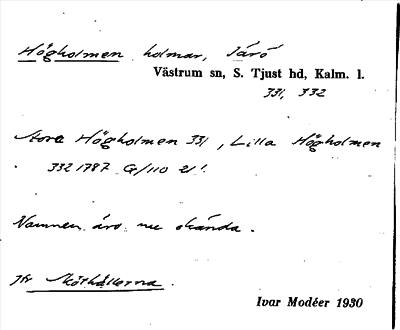 Högholmen holmar, Järö
Västrum sn, S. Tjust hd, Kalm. l.
331, 332
Stora Högholmen 331, Lilla Högholmen
332 1787 G/110 21'.
Namnen äro nu okända.
Jfr Sköthällorna.
Ivar Modéer 1930